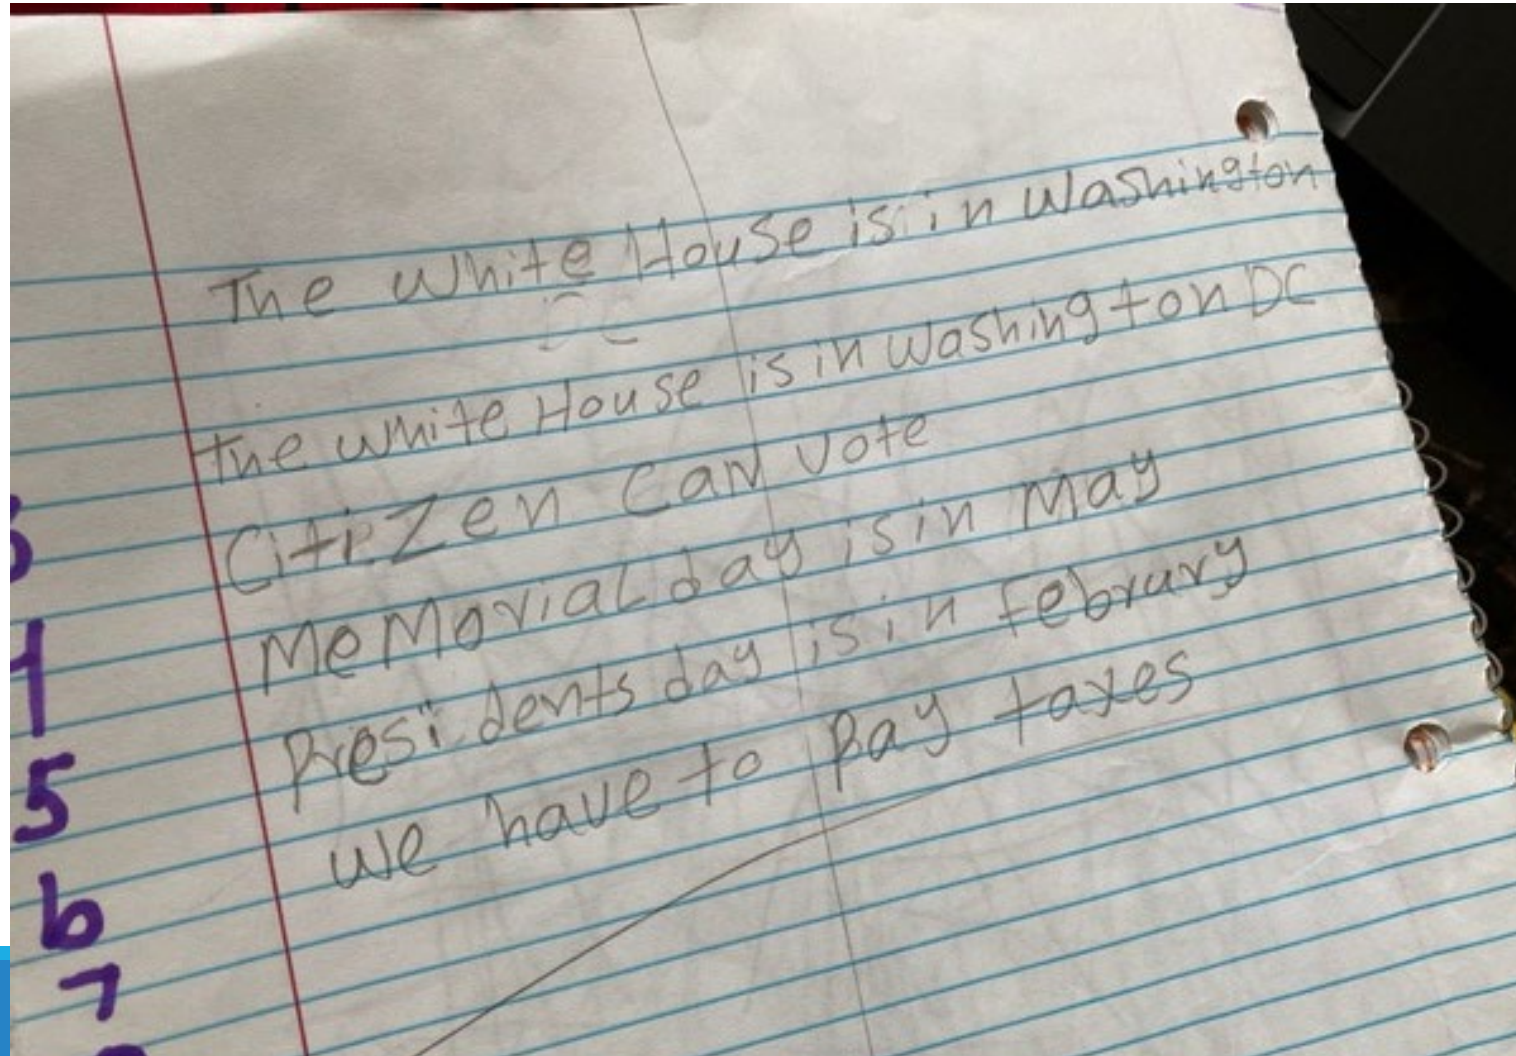 The White House is in Washington
DC
the white House is in washington DC
Citizen Can vote
MeMorial day is in May
Presidents day is in februry
we have to pay taxes
3
4
5
6
7